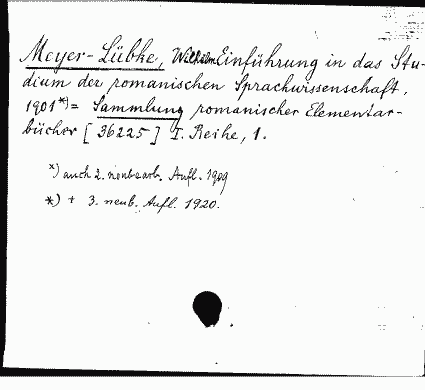 Meyer-Lübke, Wilhelm Einführung in das Stu-
dium der romanischen Sprachwissenschaft,
1901*)= Sammlung romanischer Elementar-
bücher [36225] I. Reihe, 1.
*) auch 2. neubearb. Aufl. 1909
*) + 3. neub. Aufl. 1920.